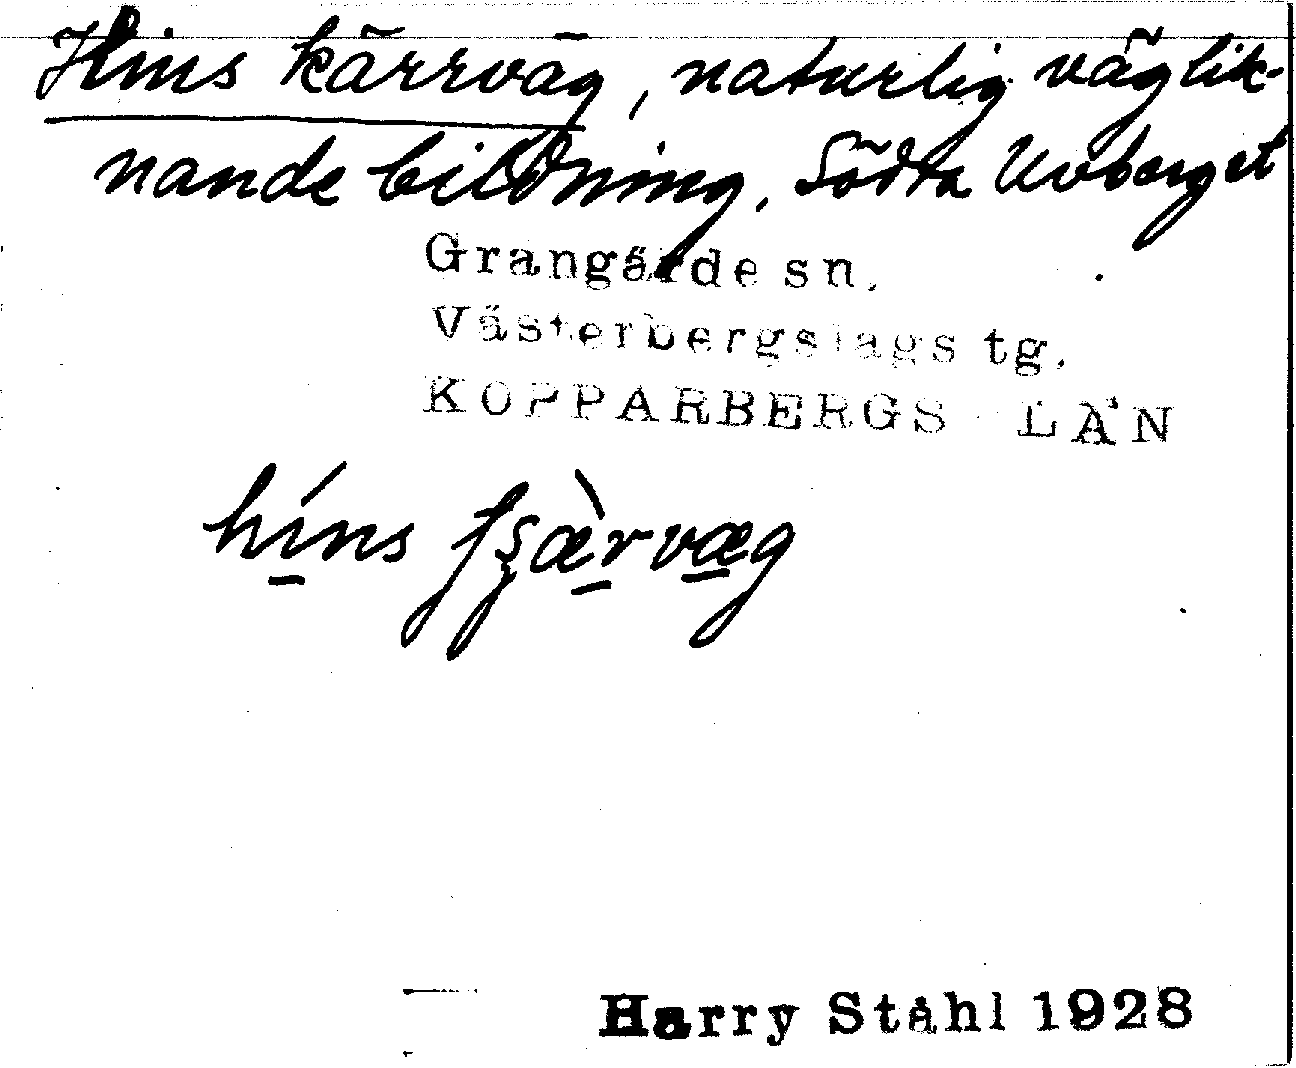 Hins kärrväg, naturlig väglik-
nande bildning, Södra Uvberget
Grangärde sn.
Västerbergslags tg.
KOPPARBERGS LÄN
híns
Harry Ståhl 1928